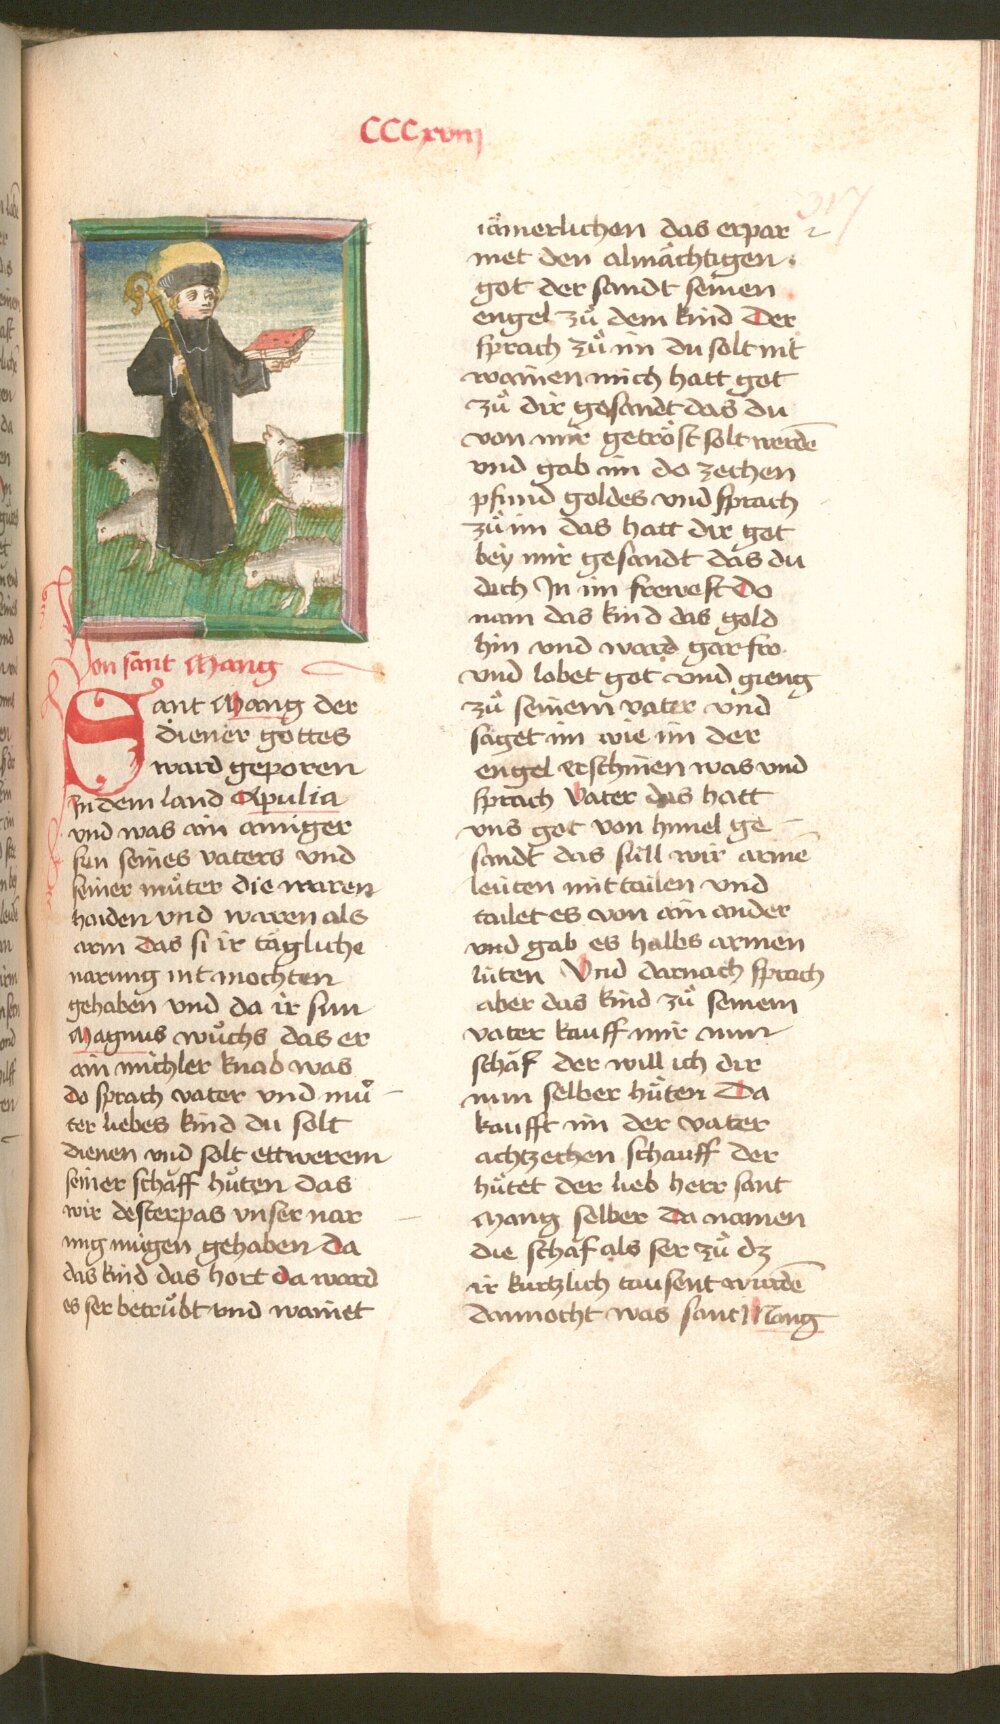 CCCxviij
317
Von sant Mang
Sant Mang der
diener gottes
ward geporen
In dem land Apulia
und was ain ainiger
sun seines vaters vnd
seiner můter die waren
haiden vnd waren als
arm das si ir tägliche
narung nit mochten
gehaben vnd da ir sun
Magnus wůchs das er
ain michler knab was
do sprach vater vnd mů
ter liebes kind du solt
dienen vnd solt ettwerem
seiner schäff hůten das
wir desterpas vnser nar
nig mügen gehaben Da
das kind das hort da ward
es ser betrůbt vnd wainet
iämerlichen das erpar
met den almächtigen
got der sandt seinen
engel zů dem kind Der
sprach zů im du solt nit
wainen mich hatt got
zů dir gesandt das du
von mir getröst solt werdē
vnd gab im do zechen
pfund goldes vnd sprach
zů im das hatt dir got
bey mir gesandt das du
dich In im frewest Do
nam das kind das gold
hin vnd ward gar fro
vnd lobet got vnd gieng
zů seinem vater vnd
saget im wie im der
engel erschinen was vnd
sprach Vater das hatt
vns got von himel ge
sandt das süll wir armē
leüten mit tailen vnd
tailet es von ain ander
vnd gab es halbs armen
lüten Vnd darnach sprach
aber das kind zů seinem
vater kauff mir nun
schäf der will ich dir
nun selber hüten Da
kaufft im der vater
achtzechen schauff der
hůtet der lieb herr sant
Mang selber Da namen
die schäf als ser zů dz
ir kurtzlich tausent wurdē
dannocht was sant Mang